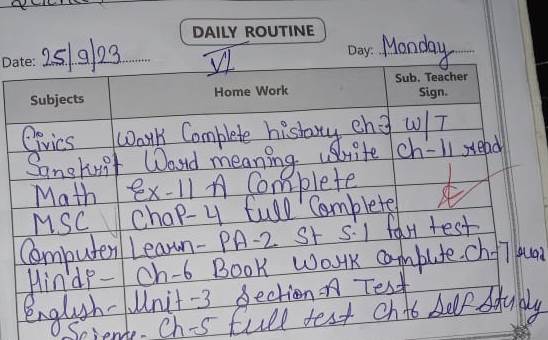 Science
DAILY ROUTINE
Date: 25/9/23 VI Day: Monday
Subjects Home Work Sub. Teacher Sign.
Civics Work Complete history ch-3 W/T
Sanskrit Word meaning write ch-11 read
Math Ex-11 A Complete
MSC Chap-4 full Complete
Computer Learn- PA-2 St S.1 for test
Hindi- Ch-6 Book Work complete. Ch-7
English- Unit-3 Section-A Test
Science- Ch-5 full test Ch-6 Self Study